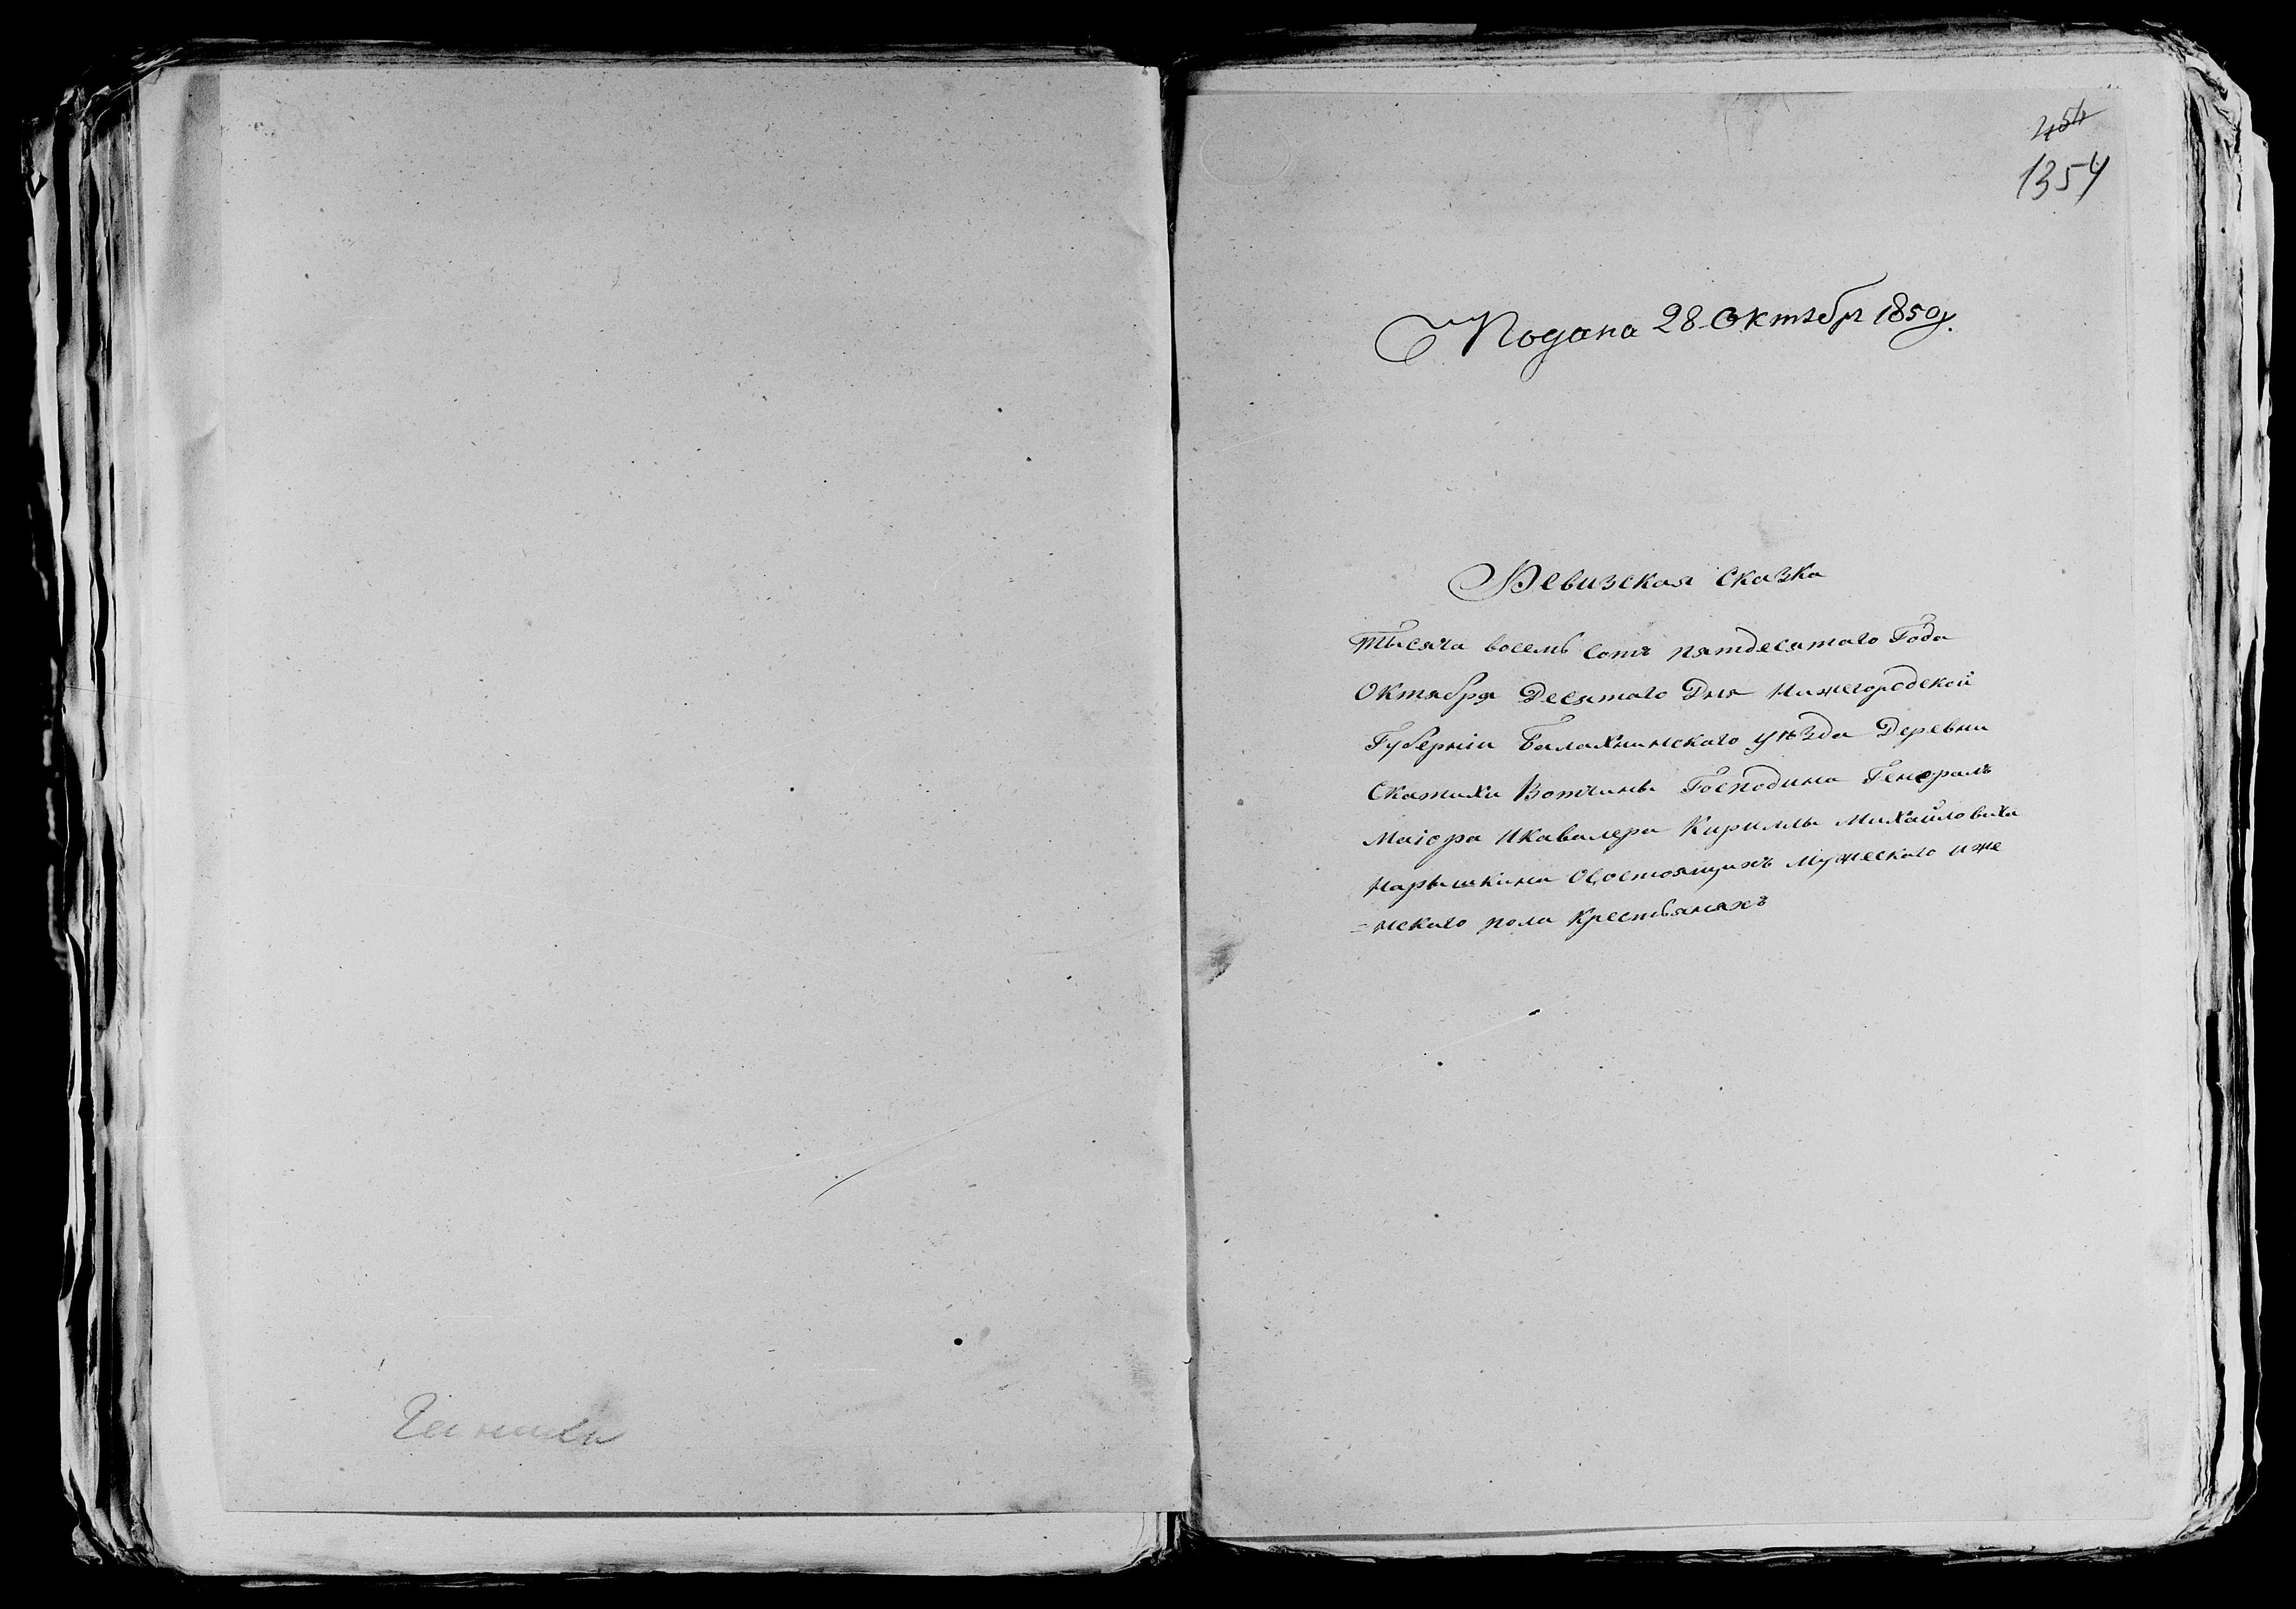 454
1354
Подана 28 Октября 1850 г.
Ревизская Сказка
Тысяча восемь Сотъ пятдесятаго Года
Октября Десятаго Дня Нижегородской
Губерніи Балахнинскаго уѣзда Деревни
Скатихи Вотчины Господина Генералъ
Маіора Икавалера Кириллы Михайловича
Нарышкина Осостоящихъ Мужескаго иже
=нскаго пола Крестьянахъ